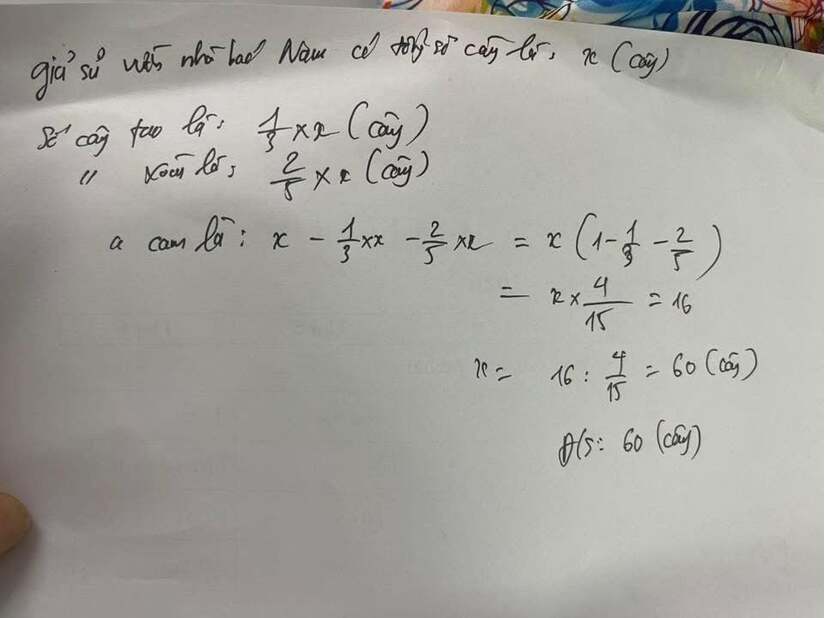 giả sử vườn nhà bạn Nam có tổng số cây là: x (cây)
Số cây táo là: 1/3 × x (cây)
" xoài là: 2/5 × x (cây)
cam là: x - 1/3 × x - 2/5 × x = x (1 - 1/3 - 2/5)
= x × 4/15 = 16
x = 16 : 4/15 = 60 (cây)
Đ/S: 60 (cây)